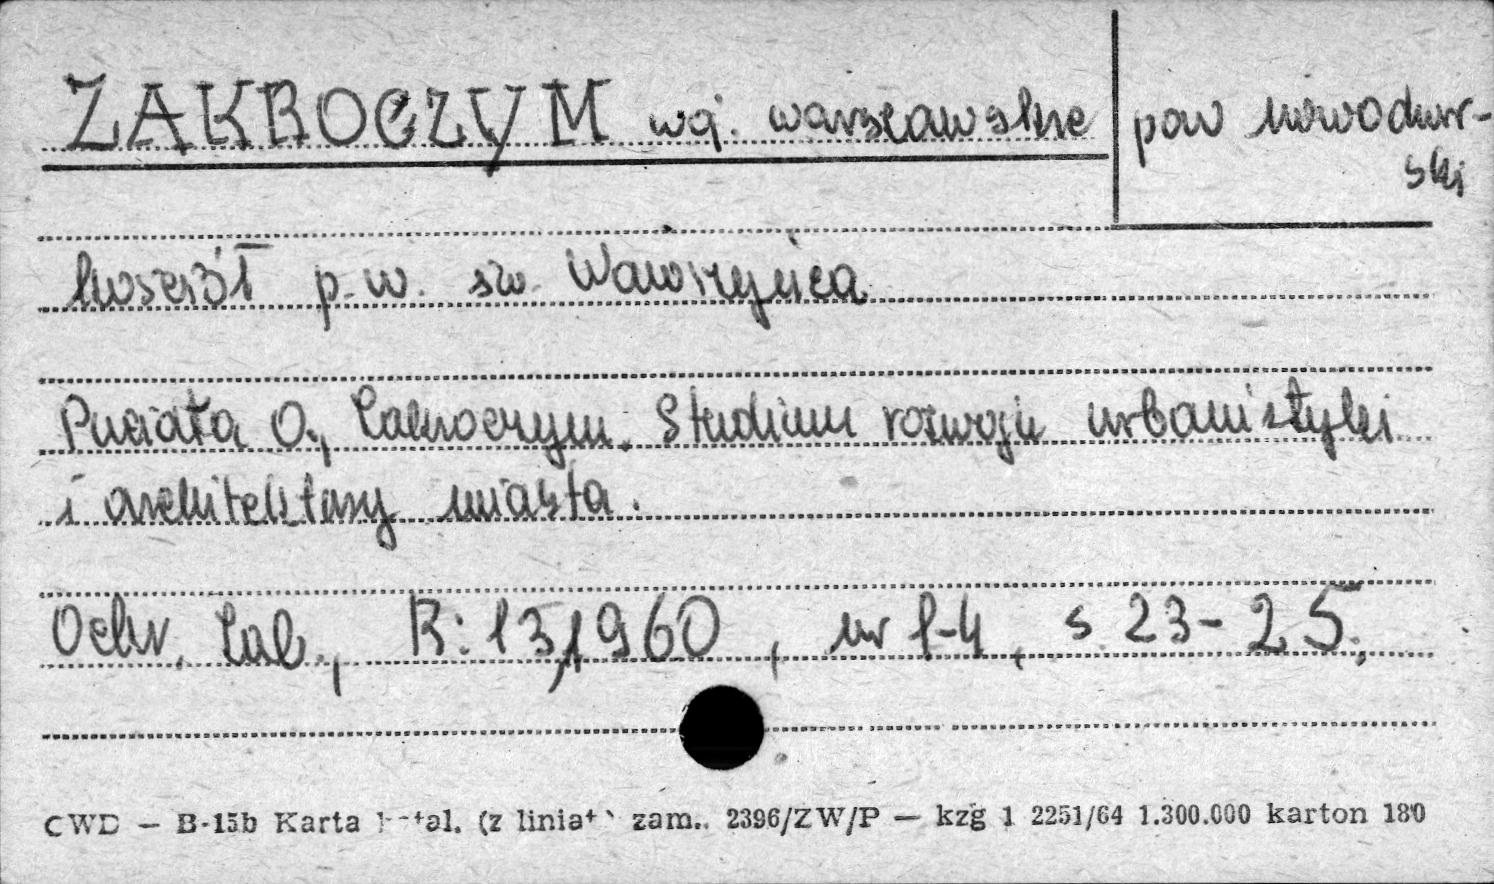 ZAKROCZYM woj. warszawskie
pow nowodwor-
ski
kościół p.w. św. Wawrzyńca
Puciata O., Zakroczym. Studium rozwoju urbanistyki
i architektury miasta.
Ochr. Zab., R: 13, 1960, nr 1-4, s. 23-25.
CWD — B-15b Karta (z liniat zam. 2396/ZW/P — kzg 1 2251/64 1.300.000 karton 180